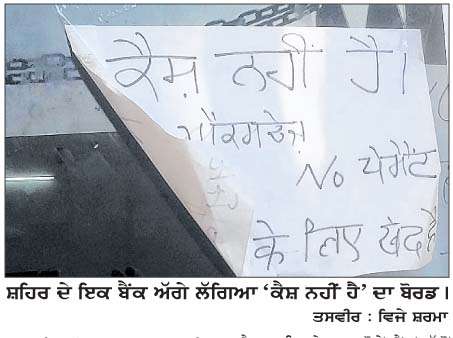 ਕੈਸ਼ ਨਹੀਂ ਹੈ।
No ਪੇਮੈਂਟ
ਕੇ ਲਿਏ ਖੇਦ ਹੈ
ਸ਼ਹਿਰ ਦੇ ਇਕ ਬੈਂਕ ਅੱਗੇ ਲੱਗਿਆ ‘ਕੈਸ਼ ਨਹੀਂ ਹੈ’ ਦਾ ਬੋਰਡ।
ਤਸਵੀਰ : ਵਿਜੇ ਸ਼ਰਮਾ